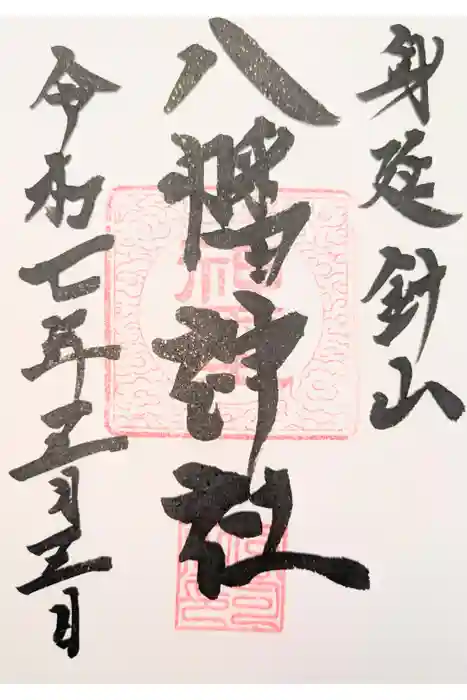 身延針山
八幡神社
令和七年三月三日